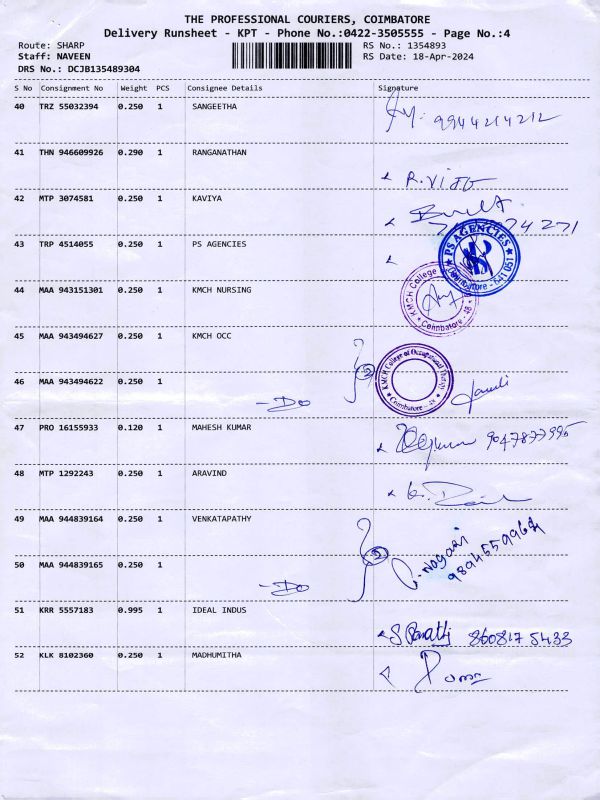 THE PROFESSIONAL COURIERS, COIMBATORE
Delivery Runsheet - KPT - Phone No.:0422-3505555 - Page No.:4
Route: SHARP RS No.: 1354893
Staff: NAVEEN RS Date: 18-Apr-2024
DRS No.: DCJB135489304
S No Consignment No Weight PCS Consignee Details Signature
40 TRZ 55032394 0.250 1 SANGEETHA
9944214212
41 THN 946609926 0.290 1 RANGANATHAN
42 MTP 3074581 0.250 1 KAVIYA
43 TRP 4514055 0.250 1 PS AGENCIES
PS AGENCIES
Coimbatore - 641 051
44 MAA 943151301 0.250 1 KMCH NURSING
KMCH College
Coimbatore - 48
45 MAA 943494627 0.250 1 KMCH OCC
KMCH College of Occupational Therapy
Coimbatore - 48
46 MAA 943494622 0.250 1
-Do
47 PRO 16155933 0.120 1 MAHESH KUMAR
9047877995
48 MTP 1292243 0.250 1 ARAVIND
49 MAA 944839164 0.250 1 VENKATAPATHY
50 MAA 944839165 0.250 1
-Do
51 KRR 5557183 0.995 1 IDEAL INDUS
860817 5433
52 KLK 8102360 0.250 1 MADHUMITHA